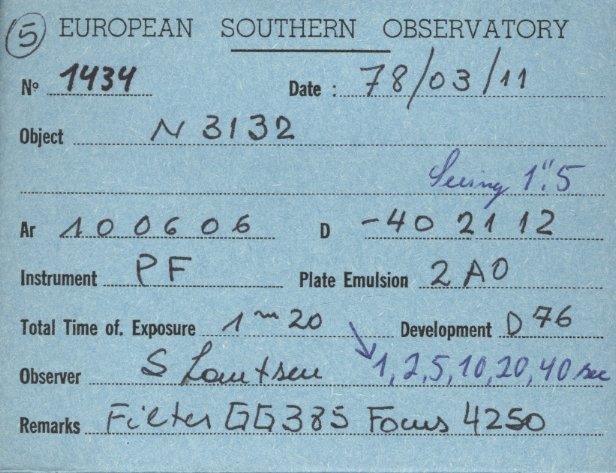 5 EUROPEAN SOUTHERN OBSERVATORY
Nº 1434 Date : 78/03/11
Object N 3132
Seeing 1".5
Ar 10 06 06 D -40 21 12
Instrument PF Plate Emulsion 2A0
Total Time of. Exposure 1m 20 Development D76
Observer S Lautsen 1, 2, 5, 10, 20, 40 sec
Remarks Filter GG385 Focus 4250